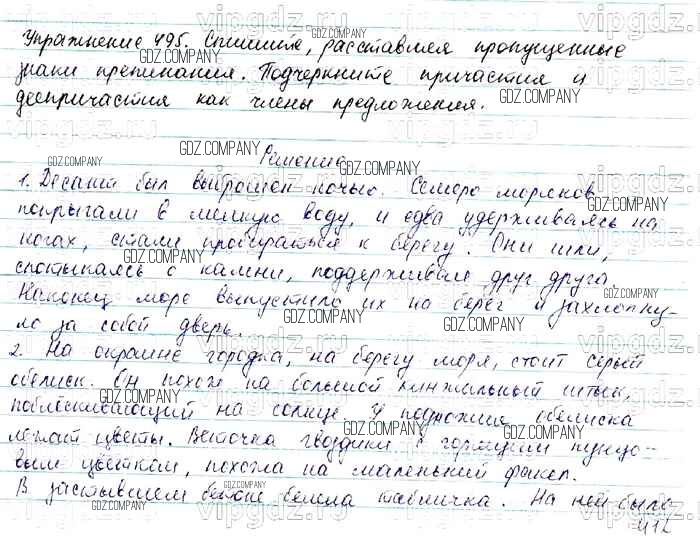 Упражнение 495. Спишите, расставляя пропущенные
знаки препинания. Подчеркните причастия и
деепричастия как члены предложения.
Решение
1. Десант был выброшен ночью. Семеро моряков
попрыгали в мелкую воду, и едва удерживаясь на
ногах, стали пробираться к берегу. Они шли,
спотыкаясь о камни, поддерживая друг друга
Наконец море выпустило их на берег и захлопну-
ло за собой дверь.
2. На окраине городка, на берегу моря, стоит серый
обелиск. Он похож на большой кинжальный штык,
поблёскивающий на солнце У подножия обелиска
лежат цветы. Веточка гвоздики с горящим пунцо-
вым цветком, похожа на маленький факел.
В застывшем бетоне белела табличка. На ней было
412
GDZ.COMPANY
vipgdz.ru